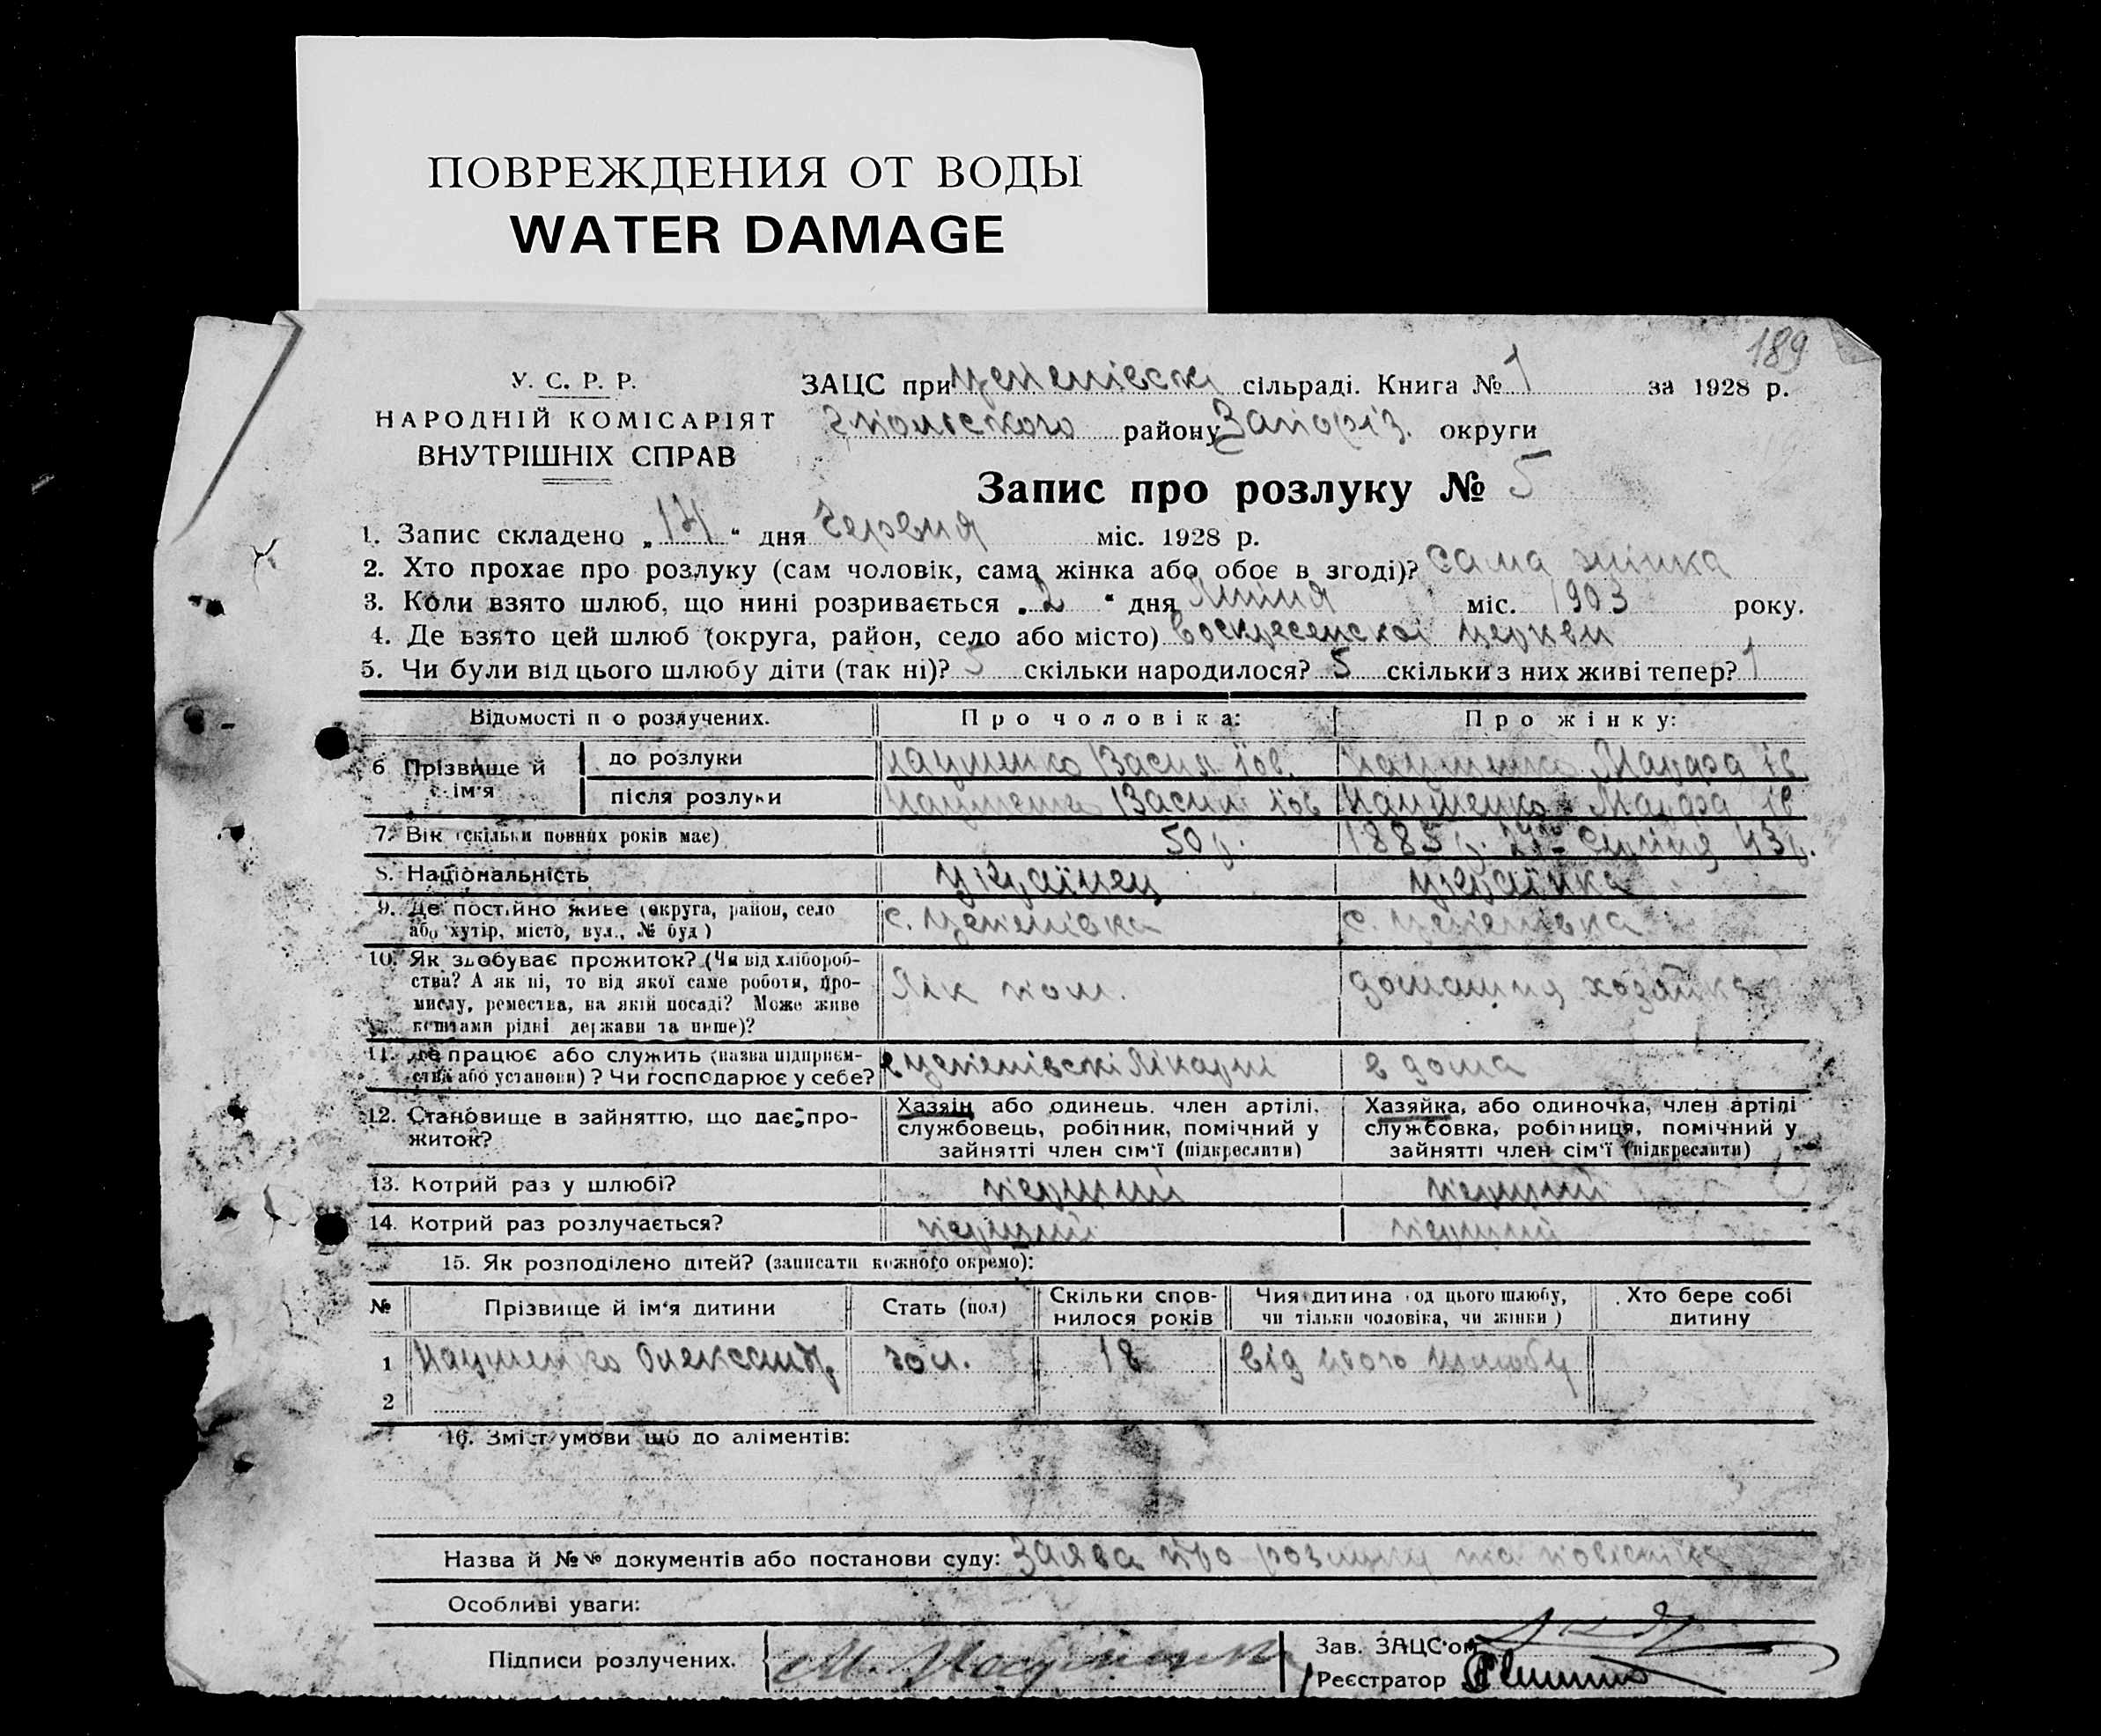 ПОВРЕЖДЕНИЯ ОТ ВОДЫ
WATER DAMAGE
189
У. С. Р. Р.
НАРОДНІЙ КОМІСАРІЯТ
ВНУТРІШНІХ СПРАВ
ЗАЦС при сільраді. Книга № 1 за 1928 р.
району Запоріз. округи
Запис про розлуку № 5
1. Запис складено „14“ дня червня міс. 1928 р.
2. Хто прохає про розлуку (сам чоловік, сама жінка або обоє в згоді)? сама жінка
3. Коли взято шлюб, що нині розривається „2“ дня міс. 1903 року.
4. Де взято цей шлюб (округа, район, село або місто) церкви
5. Чи були від цього шлюбу діти (так ні)? 5 скільки народилося? 5 скільки з них живі тепер? 1
Відомості по розлучених. Про чоловіка: Про жінку:
6 Прізвище й ім'я
до розлуки Науменко Васил Науменко
після розлуки Науменко Васил Науменко
7. Вік (скільки повних років має) 50 р. 1885 р. 43 р.
8. Національність українец українка
9. Де постійно живе (округа, район, село або хутір, місто, вул., № буд) с. с.
10. Як здобуває прожиток? (Чи від хлібороб-
ства? А як ні, то від якої саме роботи, про-
мислу, ремества, на якій посаді? Може живе
коштами рідні держави та инше)? Лік пом. домашня хозяйка
11. Де працює або служить (назва підприєм-
ства або установи)? Чи господарює у себе? в лікарні в дома
12. Становище в зайняттю, що дає про-
житок?
Хазяїн або одинець. член артілі, службовець, робітник, помічний у зайнятті член сім'ї (підкреслити)
Хазяйка, або одиночка, член артілі службовка, робітниця, помічний у зайнятті член сім'ї (підкреслити)
13. Котрий раз у шлюбі? перший перший
14. Котрий раз розлучається? перший перший
15. Як розподілено дітей? (записати кожного окремо):
№ Прізвище й ім'я дитини Стать (пол) Скільки спов-
нилося років Чия дитина (од цього шлюбу,
чи тільки чоловіка, чи жінки) Хто бере собі
дитину
1 Науменко Олександр чол. 18 від цього шлюбу
2
16. Зміст умови що до аліментів:
Назва й №№ документів або постанови суду: Заява про розлуку та повістка
Особливі уваги:
Підписи розлучених. М. Науменко
Зав. ЗАЦС'ом
Реєстратор